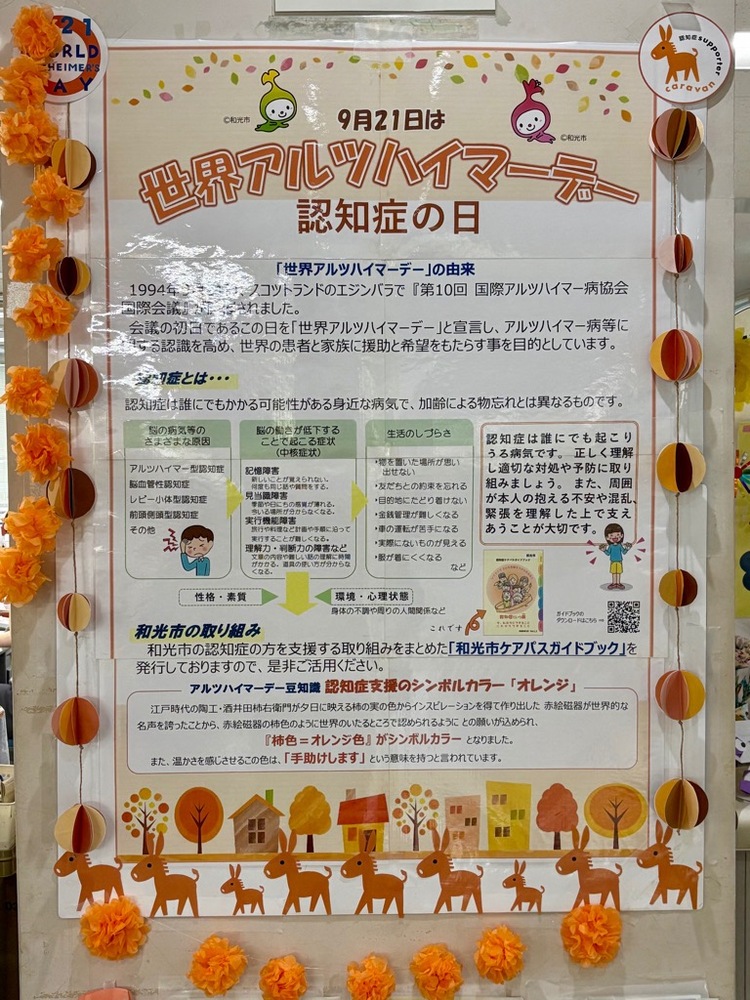 21
WORLD
ALZHEIMER'S
DAY
認知症supporter
caravan
©和光市
©和光市
9月21日は
世界アルツハイマーデー
認知症の日
「世界アルツハイマーデー」の由来
1994年 スコットランドのエジンバラで『第10回 国際アルツハイマー病協会
国際会議』が されました。
会議の初日であるこの日を「世界アルツハイマーデー」と宣言し、アルツハイマー病等に
する認識を高め、世界の患者と家族に援助と希望をもたらす事を目的としています。
認知症とは・・・
認知症は誰にでもかかる可能性がある身近な病気で、加齢による物忘れとは異なるものです。
脳の病気等の
さまざまな原因
アルツハイマー型認知症
脳血管性認知症
レビー小体型認知症
前頭側頭型認知症
その他
脳の働きが低下する
ことで起こる症状
(中核症状)
記憶障害
新しいことが覚えられない。
何度も同じ話や質問をする。
見当識障害
季節や日にちの感覚が薄れる。
今いる場所が分からなくなる。
実行機能障害
旅行や料理など計画や手順に沿って
実行することが難しくなる。
理解力・判断力の障害など
文章の内容や難しい話の理解に時間
がかかる。道具の使い方が分からな
くなる。
生活のしづらさ
・物を置いた場所が思い
出せない
・友だちとの約束を忘れる
・目的地にたどり着けない
・金銭管理が難しくなる
・車の運転が苦手になる
・実際にないものが見える
・服が着にくくなる
など
認知症は誰にでも起こり
うる病気です。正しく理解
し適切な対処や予防に取り
組みましょう。また、周囲
が本人の抱える不安や混乱、
緊張を理解した上で支え
あうことが大切です。
性格・素質
環境・心理状態
身体の不調や周りの人間関係など
これです
ガイドブックの
ダウンロードはこちら→
和光市の取り組み
和光市の認知症の方を支援する取り組みをまとめた「和光市ケアパスガイドブック」を
発行しておりますので、是非ご活用ください。
アルツハイマーデー豆知識 認知症支援のシンボルカラー「オレンジ」
江戸時代の陶工・酒井田柿右衛門が夕日に映える柿の実の色からインスピレーションを得て作り出した 赤絵磁器が世界的な
名声を誇ったことから、赤絵磁器の柿色のように世界のいたるところで認められるように との願いが込められ、
『柿色＝オレンジ色』がシンボルカラー となりました。
また、温かさを感じさせるこの色は、「手助けします」という意味を持つと言われています。